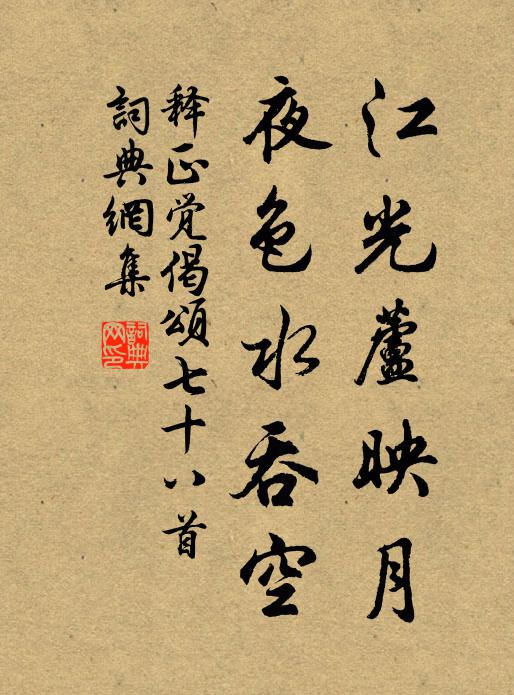 江光蘆映月
夜色水吞空
释正觉偈頌七十八首
詞典網集
詞典
网印